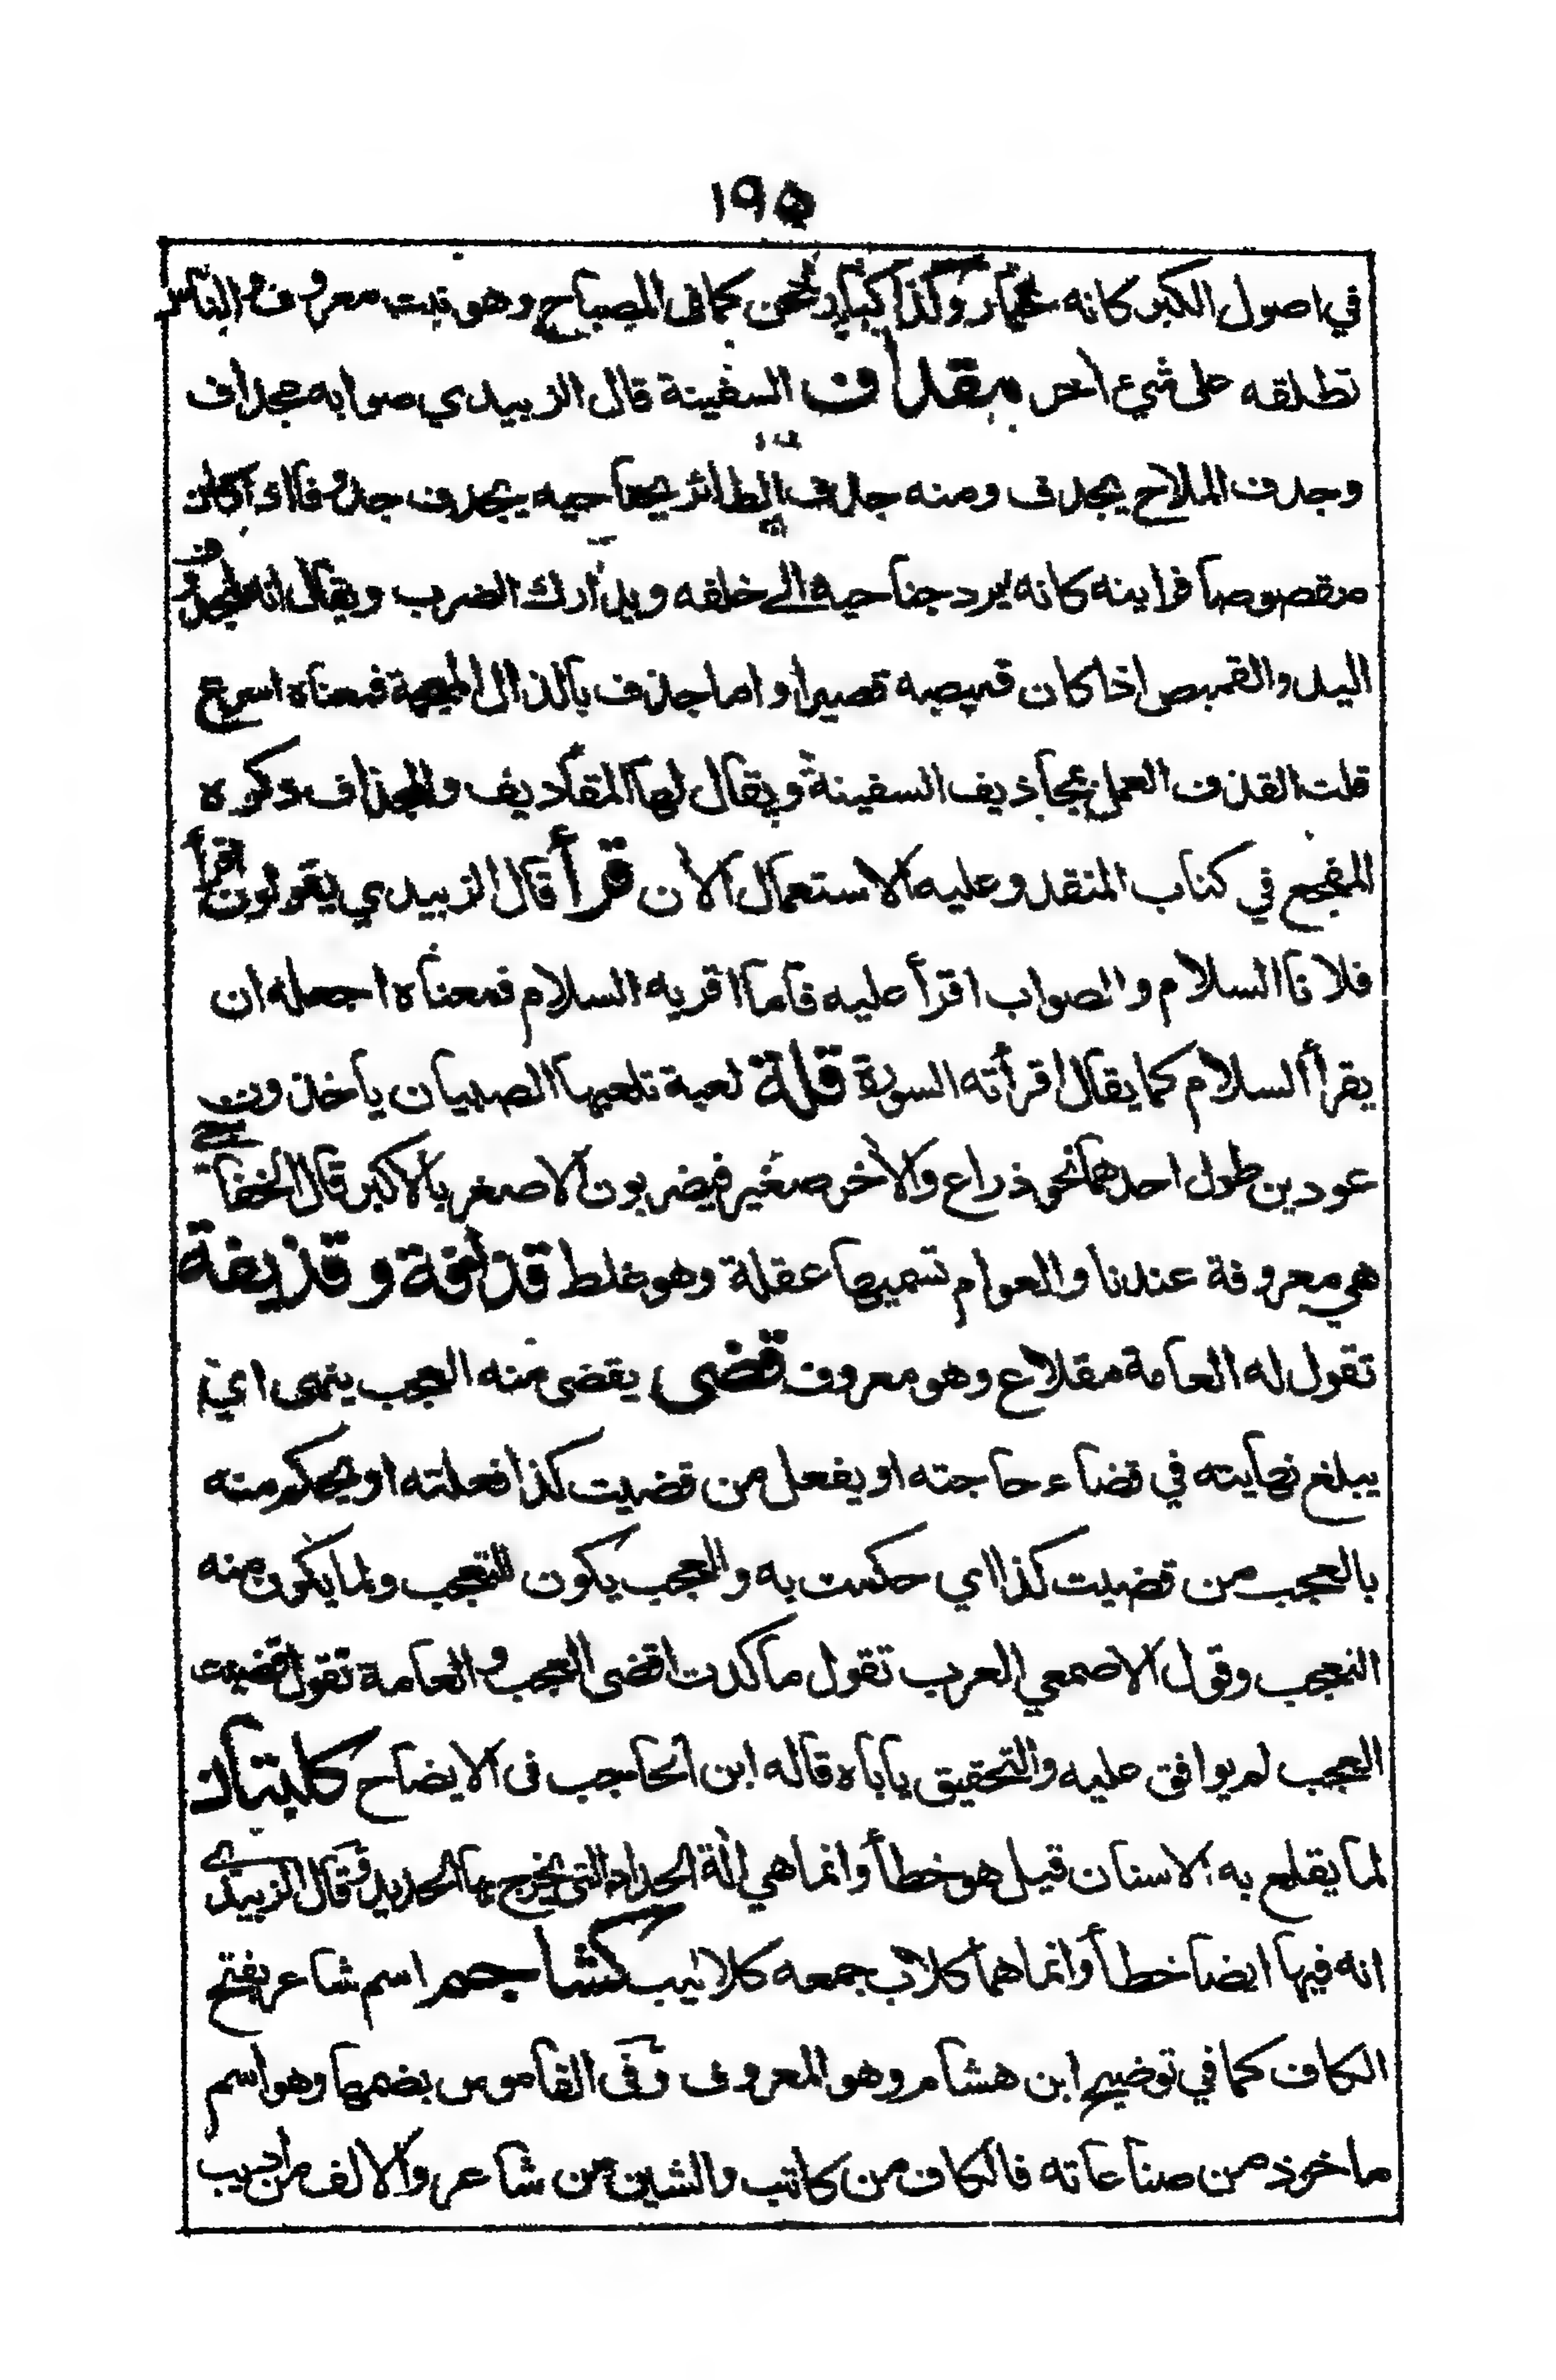 ١٩٥
في اصول الكبر كانه خمار وكذا كبار نحن كما فى المصباح وهو نبت معروف والناس
تطلقه على شيء اخر مقداف السفينة قال الزبيدي صوابه مجداف
وجدف الملاح يجدف ومنه جدف الطائر بجناحيه يجدف جدوفا اذا كان
مقصوصا فرايته كانه يرد جناحيه الى خلفه ويدارك الضرب ويقال انه لمجدوف
اليد والقميص اذا كان قميصه قصيرا واما جذف بالذال المعجمة فمعناه اسرع
قلت القذف العمل بمجاذيف السفينة ويقال لها المقاديف والمجذاف ذكره
المفجع في كتاب المنقد وعليه الاستعمال الأن قرأ قال الزبيدي يقولون اقرأ
فلانا السلام والصواب اقرأ عليه فاما اقريه السلام فمعناه اجعله ان
يقرأ السلام كما يقال اقرأته السورة قلة لعبة تلعبها الصبيان ياخذون
عودين طول احدهما نحو ذراع والأخر صغير فيضربون الاصغر بالاكبر قال الخفاجي
هي معروفة عندنا والعوام تسميها عقلة وهو غلط قذافة وقذيفة
تقول له العامة مقلاع وهو معروف قضى يقضى منه العجب ينهى اي
يبلغ نهايته في قضاء حاجته او يفعل من قضيت كذا فعلته او يحكم منه
بالعجب من قضيت كذا اي حكمت به والعجب يكون للتعجب ولما يكون منه
التعجب وقول الاصمعي العرب تقول ما كدت اقضى العجب والعامة تقول قضيت
العجب لم يوافق عليه والتحقيق ياباه قاله ابن الحاجب فى الايضاح كلبتان
لما يقلع به الاسنان قيل هو خطأ وانما هي الة الحداد التى يخرج بها الحديد وقال الزبيدي
انه فيها ايضا خطأ وانما هما كلاب جمعه كلاليب كشاجم اسم شاعر بفتح
الكاف كما في توضيح ابن هشام وهو المعروف وفى القاموس بضمها وهو اسم
ماخوذ من صناعاته فالكاف من كاتب والشين من شاعر والالف من اديب